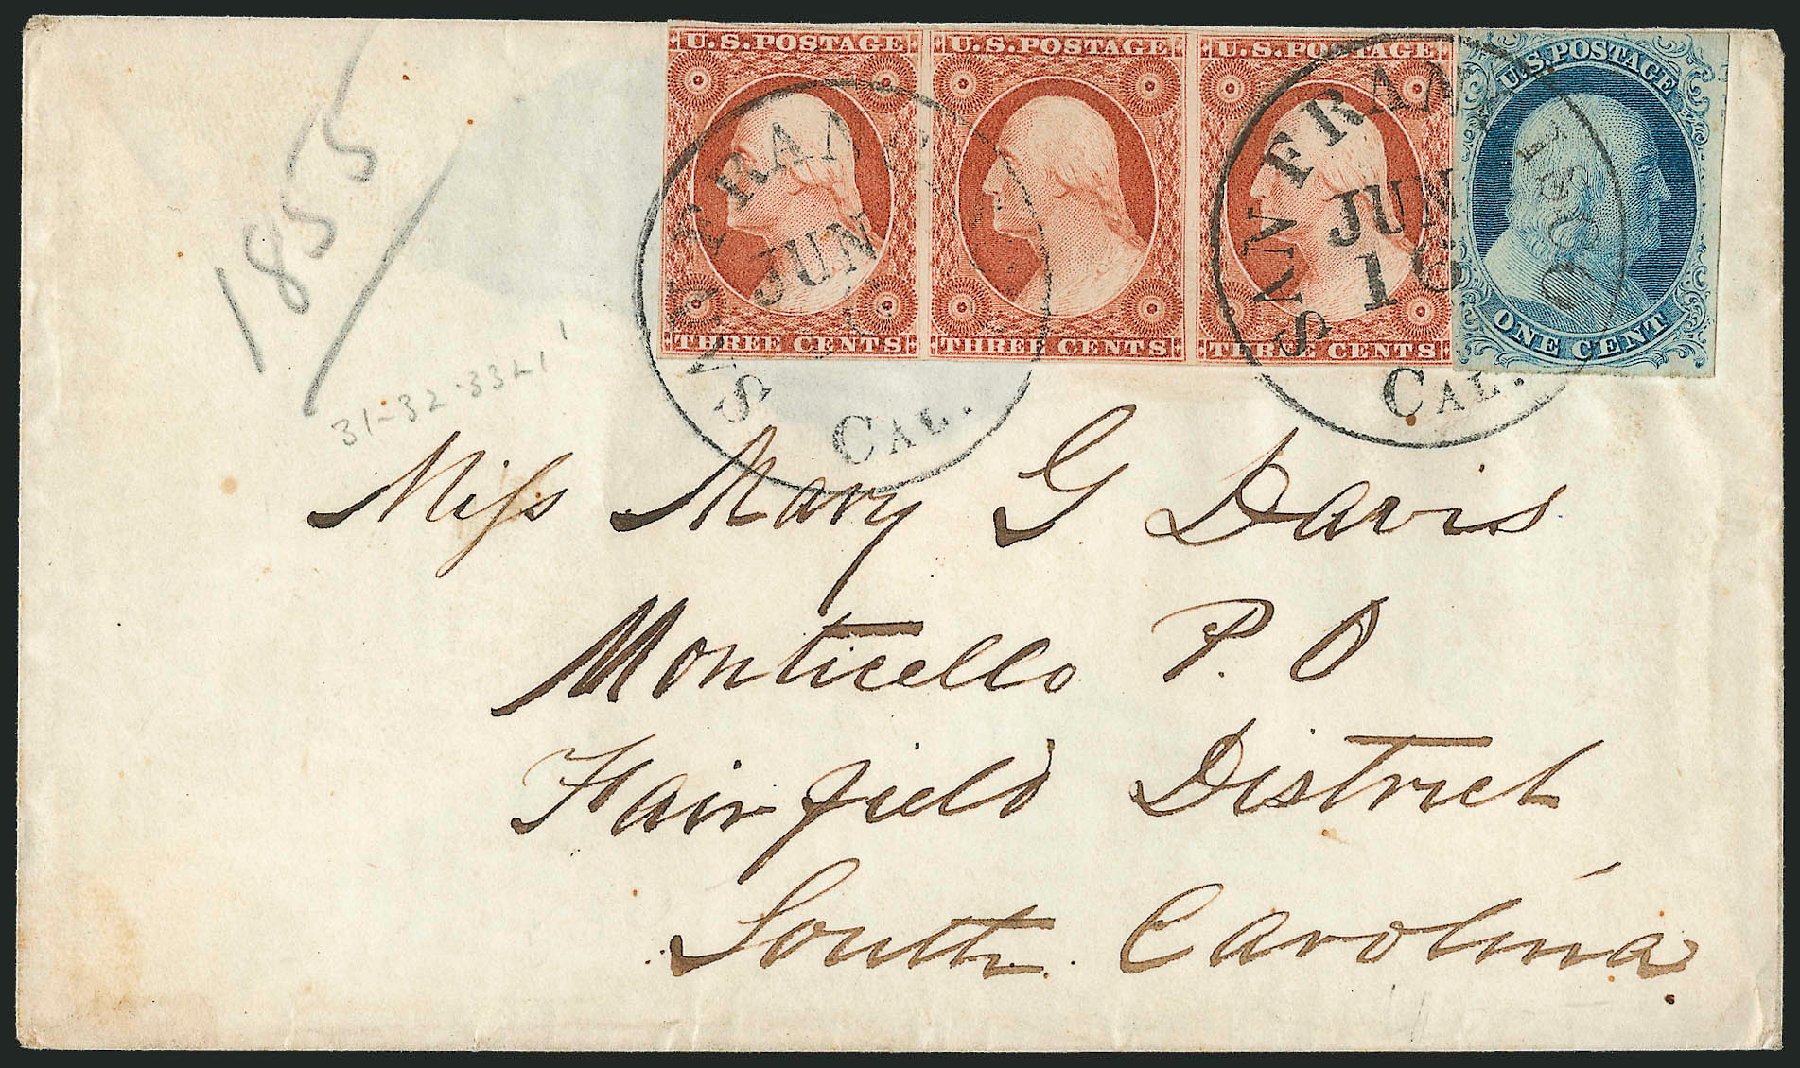 U.S. POSTAGE U.S. POSTAGE U.S. POSTAGE U.S. POSTAGE
THREE CENTS THREE CENTS THREE CENTS ONE CENT
SAN FRAN
JUN
CAL.
SAN FRAN CISCO
JUN
16
CAL.
1855
31-32-33L1
Miss Mary G Davis
Monticello P. O
Fairfield District
South Carolina